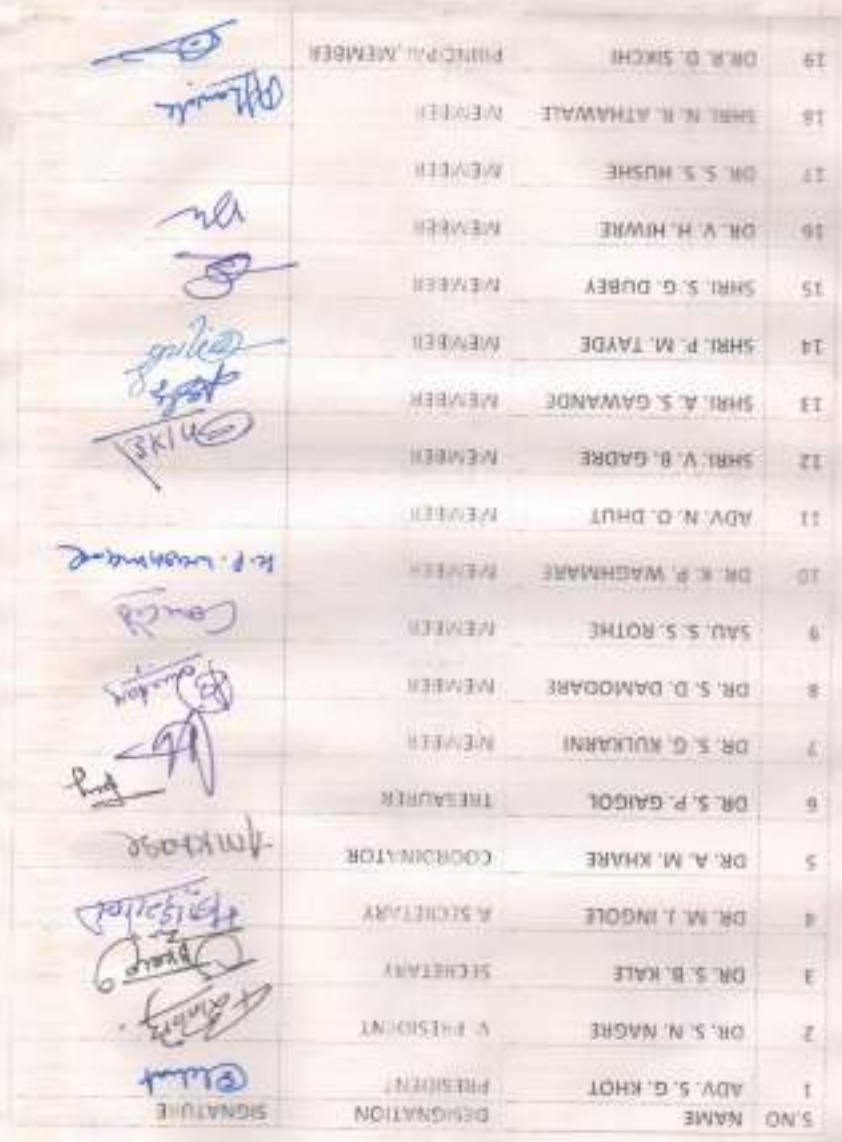 S.NO NAME DESIGNATION SIGNATURE
1 ADV. S. G. KHOT PRESIDENT
2 DR. S. N. NAGRE V. PRESIDENT
3 DR. S. B. KALE SECRETARY
4 DR. M. J. INGOLE A SECRETARY
5 DR. A. M. KHARE COORDINATOR AMKhare
6 DR. S. P. GAIGOL TRESAURER
7 DR. S. G. KULKARNI MEMBER
8 DR. S. D. DAMODARE MEMBER
9 SAU. S. S. ROTHE MEMBER
10 DR. K. P. WAGHMARE MEMBER K.P. Waghmare
11 ADV. N. O. DHUT MEMBER
12 SHRI. V. B. GADRE MEMBER
13 SHRI. A. S. GAWANDE MEMBER
14 SHRI. P. M. TAYDE MEMBER
15 SHRI. S. G. DUBEY MEMBER
16 DR. V. H. HIWRE MEMBER
17 DR. S. S. HUSHE MEMBER
18 SHRI. N. R. ATHAWALE MEMBER
19 DR.R. D. SIKCHI PRINCIPAL, MEMBER